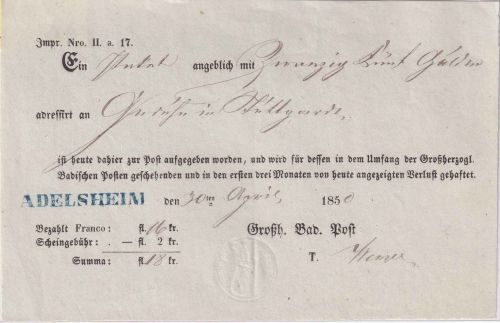 Impr. Nro. II. a. 17.
Ein Paket angeblich mit Zwanzig Fünf Gulden
adressirt an in Stuttgardt
ist heute dahier zur Post aufgegeben worden, und wird für dessen in dem Umfang der Großherzogl.
Badischen Posten geschehenden und in den ersten drei Monaten von heute angezeigten Verlust gehaftet.
ADELSHEIM den 30ten April 1850
Bezahlt Franco: fl. 16 kr.
Scheingebühr: . — fl. 2 kr.
Großh. Bad. Post
Summa: fl. 18 kr.
T.